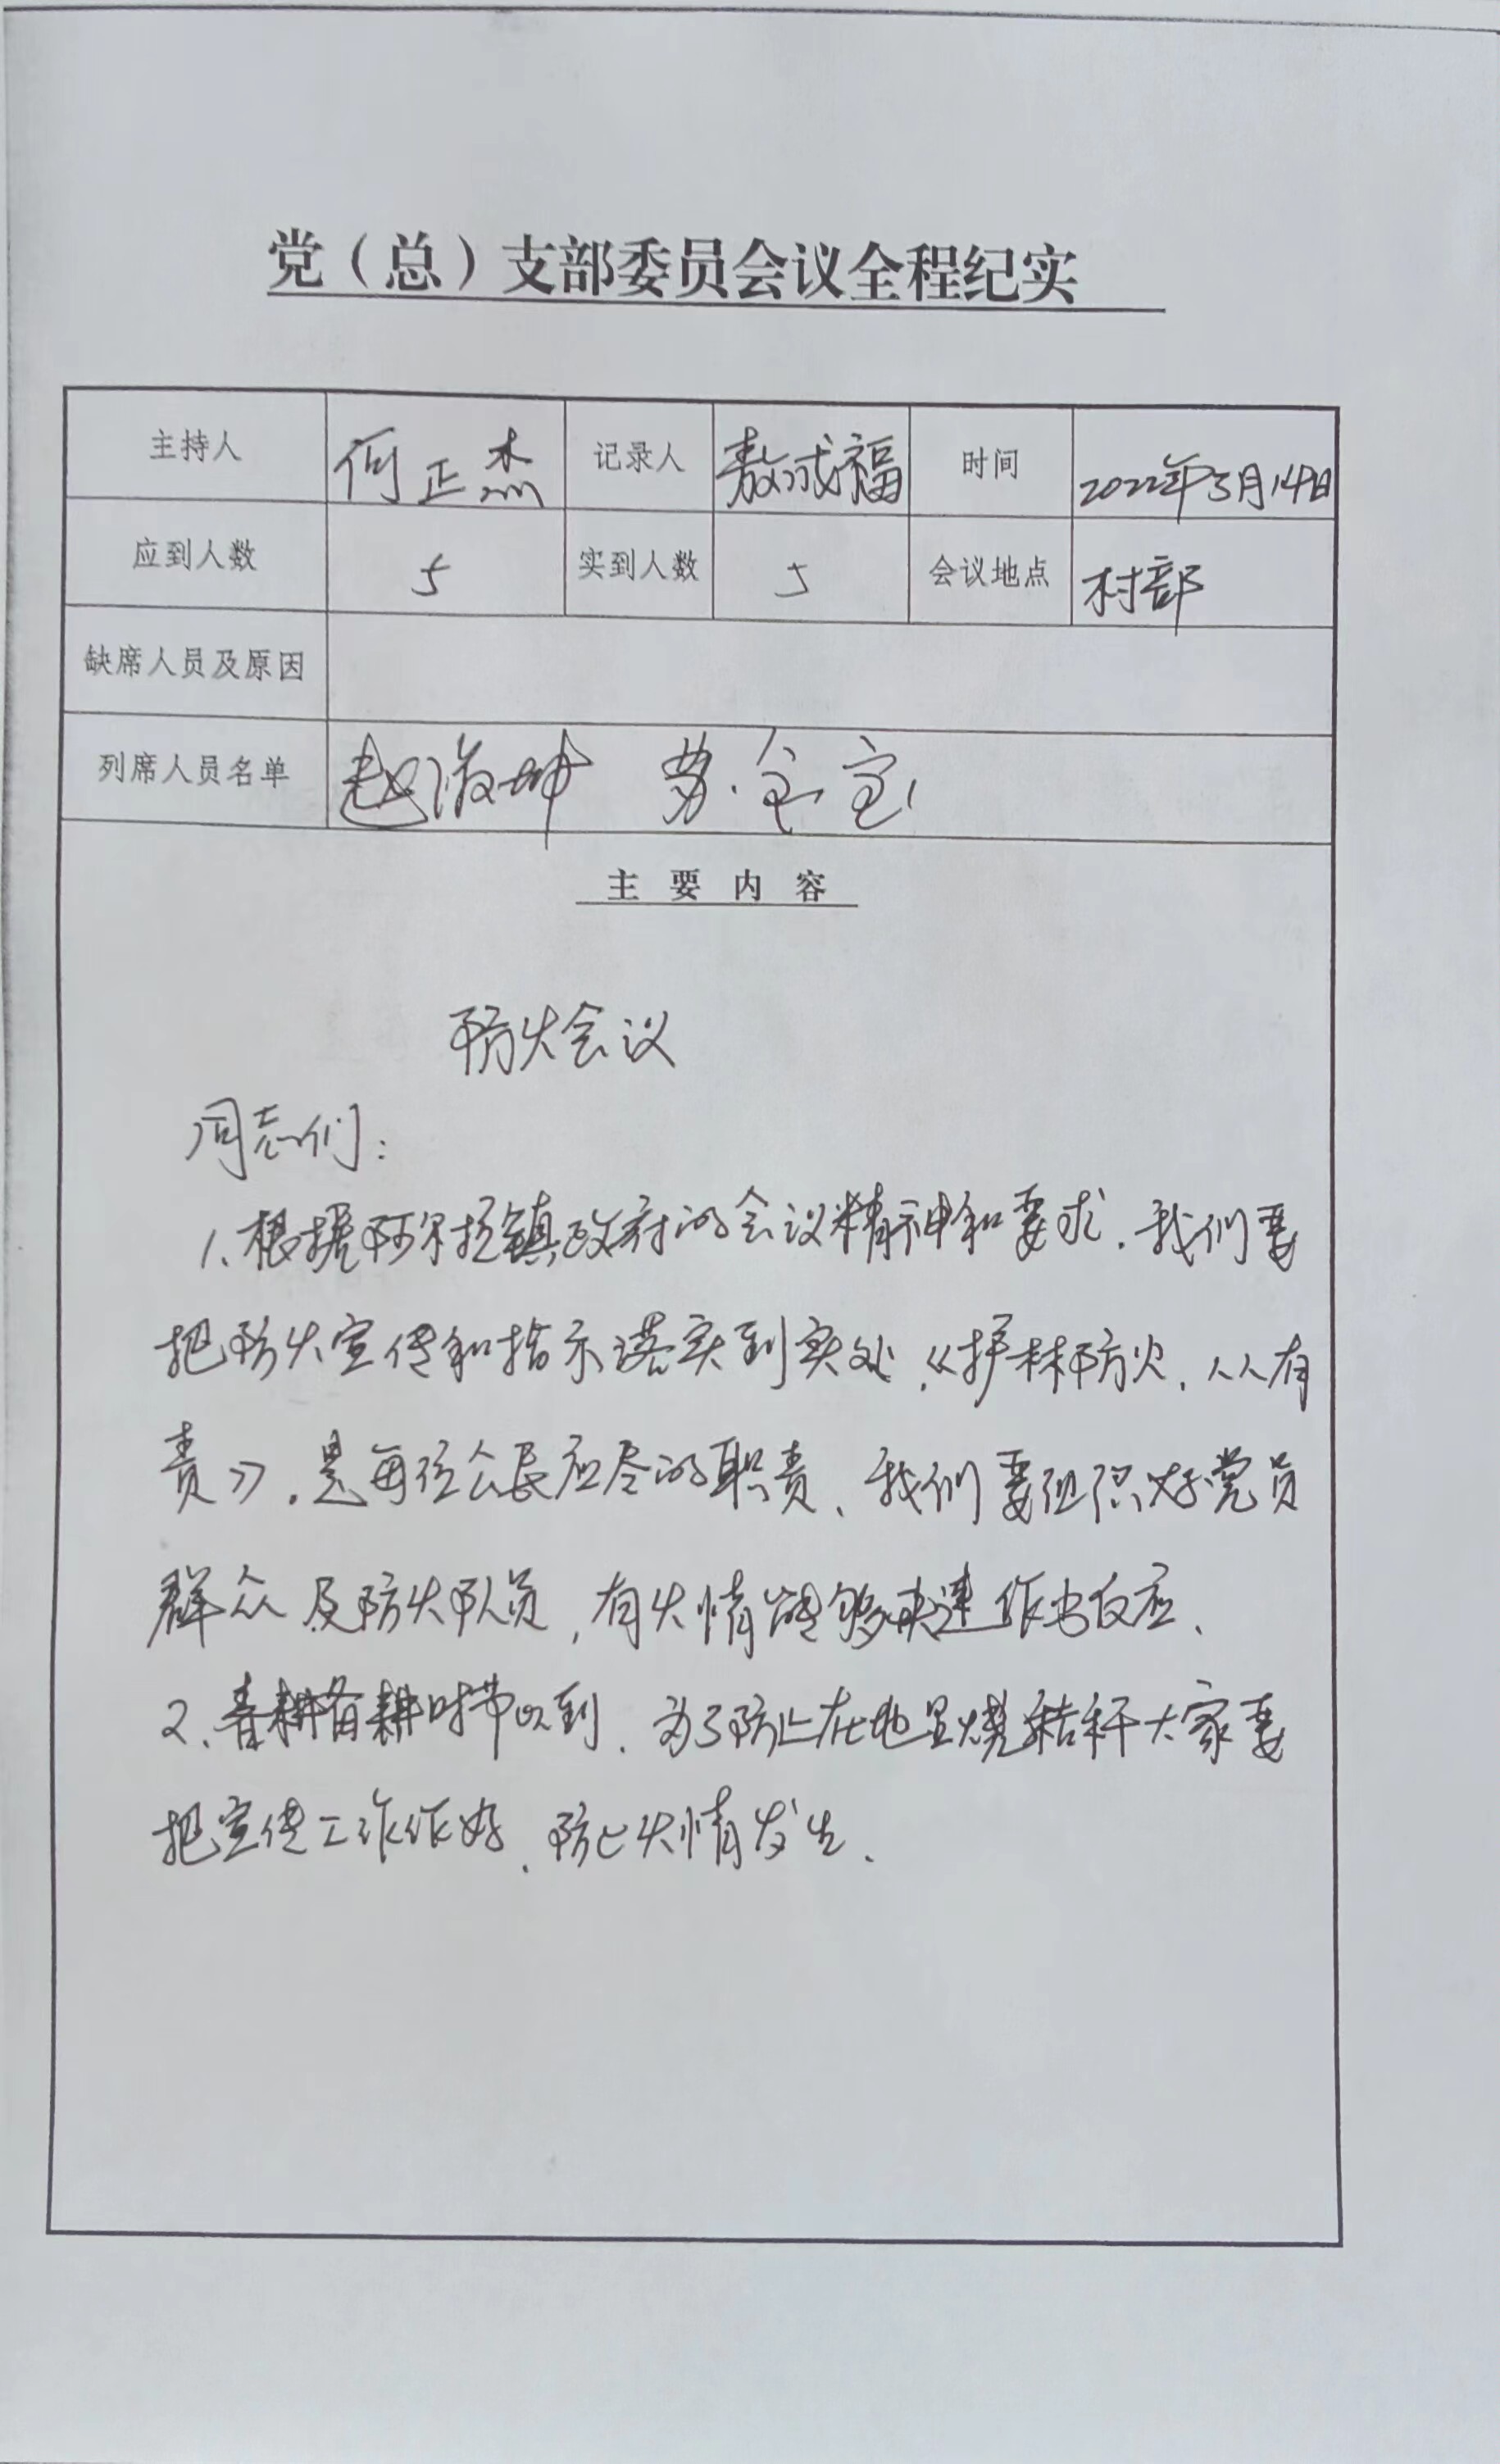 党（总）支部委员会议全程纪实
主持人 何正杰 记录人 敖成福 时间 2022年3月14日
应到人数 5 实到人数 5 会议地点 村部
缺席人员及原因
列席人员名单 赵海坤 苏金宝
主要内容
防火会议
同志们：
1、根据阿尔拉镇政府的会议精神和要求，我们要
把防火宣传和指示落实到实处，《护林防火，人人有
责》，是每位公民应尽的职责、我们要组织好党员
群众及防火队员，有火情能够快速作出反应、
2、春耕备耕时节以到、为了防止在地里烧秸秆大家要
把宣传工作作好、防止火情发生、